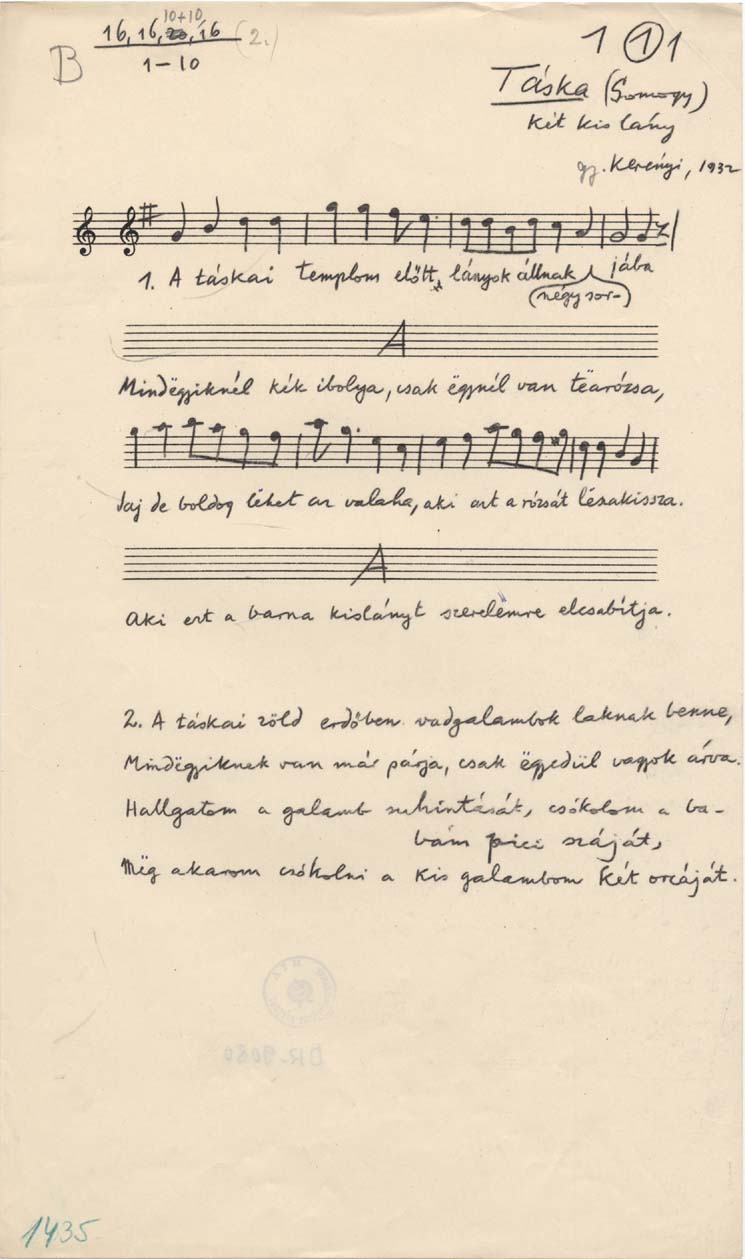 10+10
16, 16, 20, 16 (2.)
1–10
B
1 1 1
Táska (Somogy)
két kislány
gy. Kerényi, 1932
1. A táskai templom előtt, lányok állnak jába
(négy sor-)
A
Mindëgyiknél kék ibolya, csak ëgynél van tëarózsa,
Jaj de boldog lëhet az valaha, aki azt a rózsát lëszakissza.
A
Aki ezt a barna kislányt szerelëmre elcsabítja.
2. A táskai zöld erdőben vadgalambok laknak benne,
Mindëgyiknek van már párja, csak ëgyedül vagyok árva.
Hallgatom a galamb suhintását, csókolom a ba-
bám pici száját,
Mëg akarom csókolni a kis galambom két orcáját.
BR-9080
1435